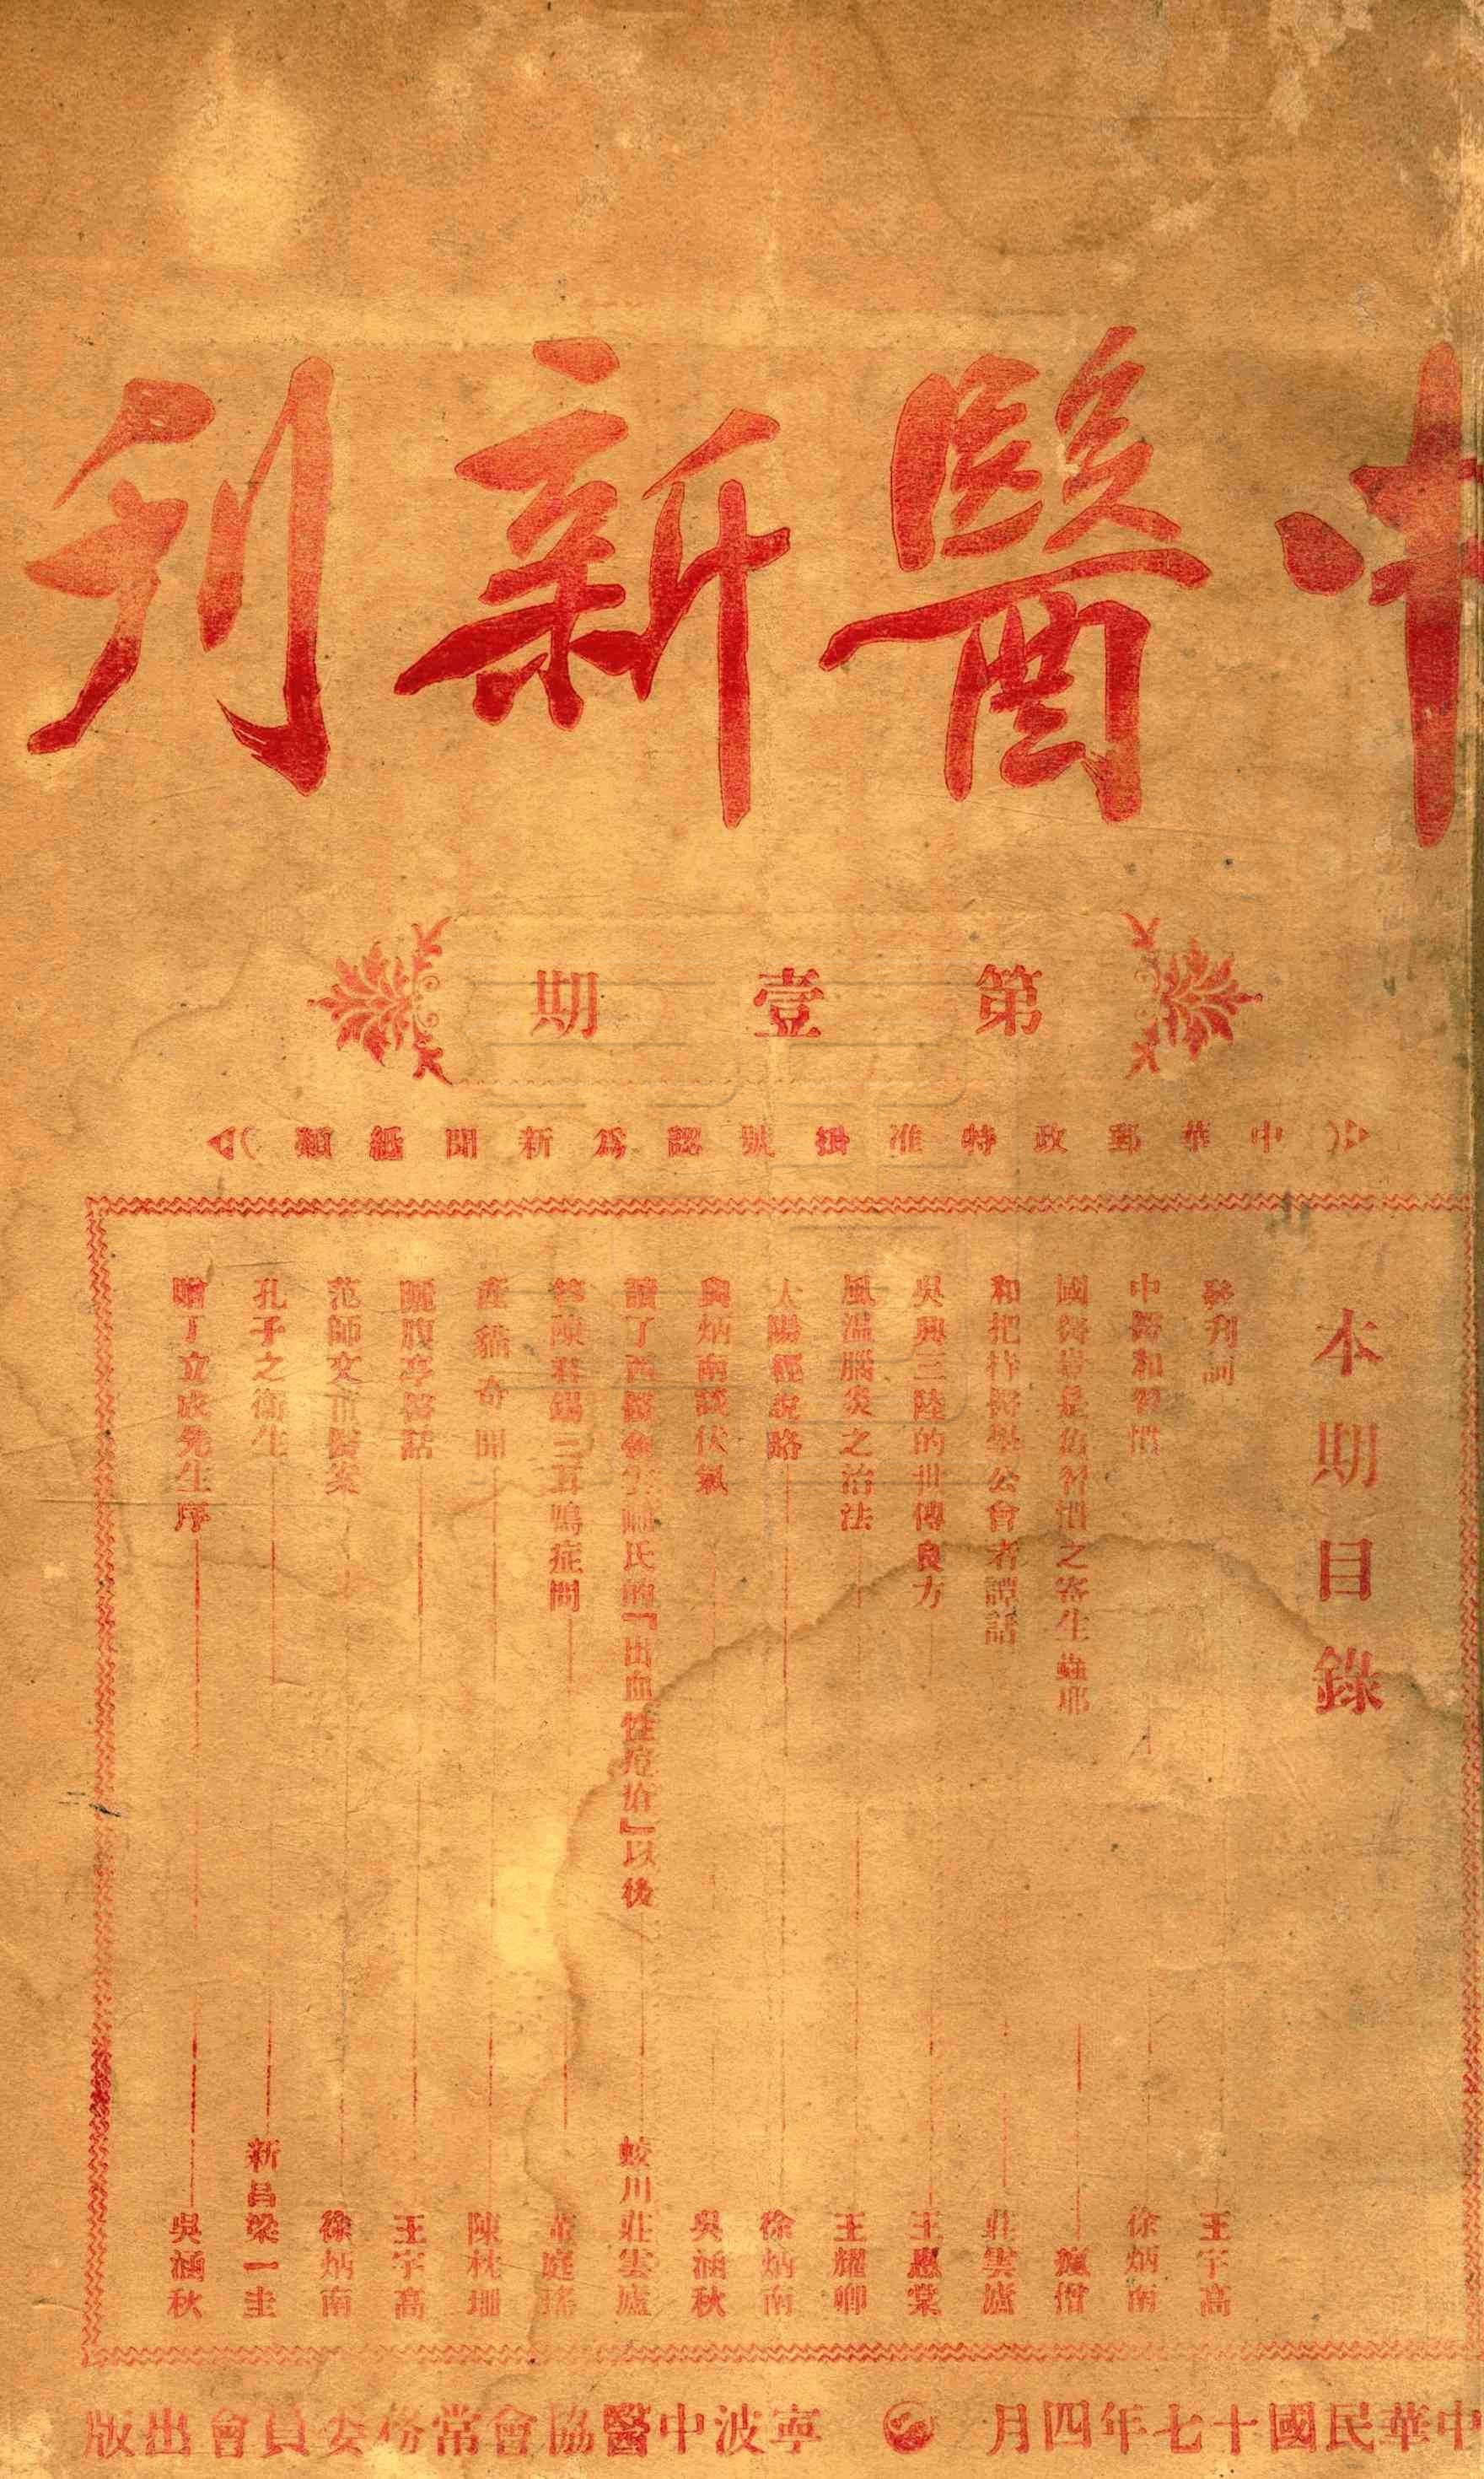 中醫新刊
第壹期
中華郵政特准掛號認爲新聞紙類
本期目錄
發刊詞 王宇高
中醫和習慣 徐炳南
國醫豈是依習慣之寄生蟲耶 瘦僧
和把持醫學公會者譚話 莊雲廬
吳興三陸的世傳良方 王惠棠
風溫腦炎之治法 王耀卿
太陽經說略 徐炳南
與炳南談伏氣 吳涵秋
讀了西醫 氏的『出血性痘瘡』以後 蛟川莊雲廬
答陳君錫三耳鳴症問 董庭瑤
產貓奇聞 陳枕珊
曬腹亭醫話 王宇高
范師文甫醫案 徐炳南
孔子之衛生 新昌梁一圭
贈丁立成先生序 吳涵秋
中華民國十七年四月 寧波中醫協會常務委員會出版